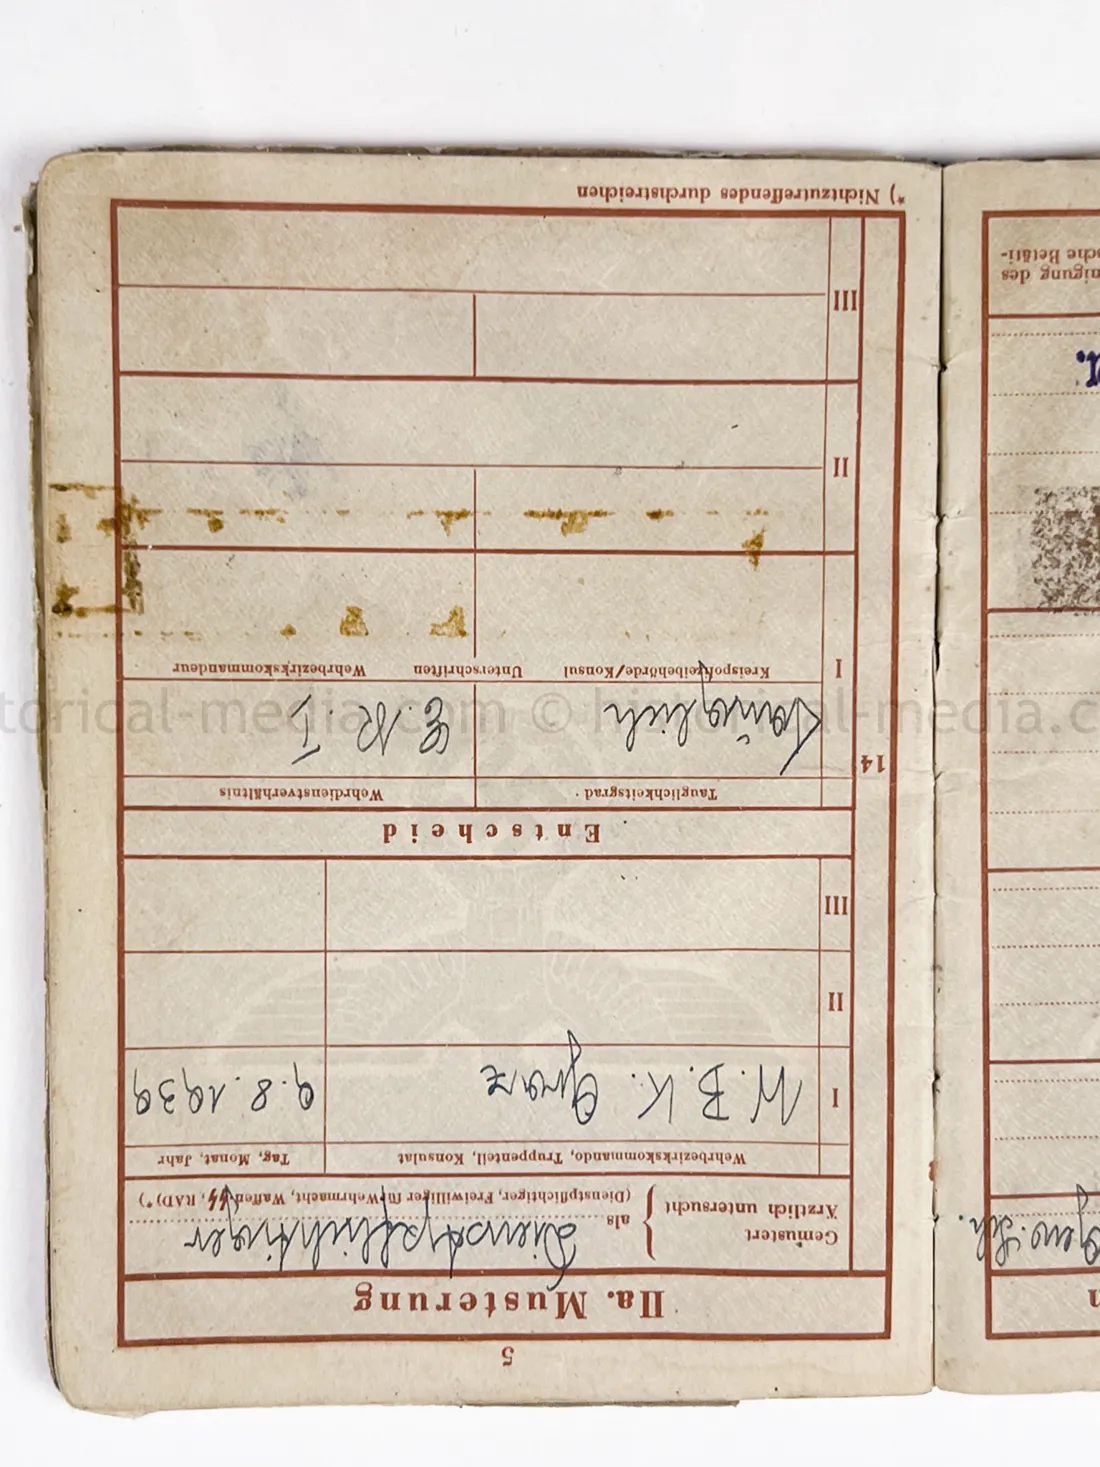 5
IIa. Musterung
Gemustert
Ärztlich untersucht
} als Dienstpflichtiger
(Dienstpflichtiger, Freiwilliger für Wehrmacht, Waffen-SS, RAD) *)
Wehrbezirkskommando, Truppenteil, Konsulat
Tag, Monat, Jahr
I W.B.K. Graz 9.8.1939
II
III
Entscheid
14
Tauglichkeitsgrad
Wehrdienstverhältnis
I
Tauglich E.R.I
Kreispolizeibehörde/Konsul Unterschriften Wehrbezirkskommandeur
II
III
*) Nichtzutreffendes durchstreichen
n
nigung des
che Betäti-
historical-media.com © historical-media.c